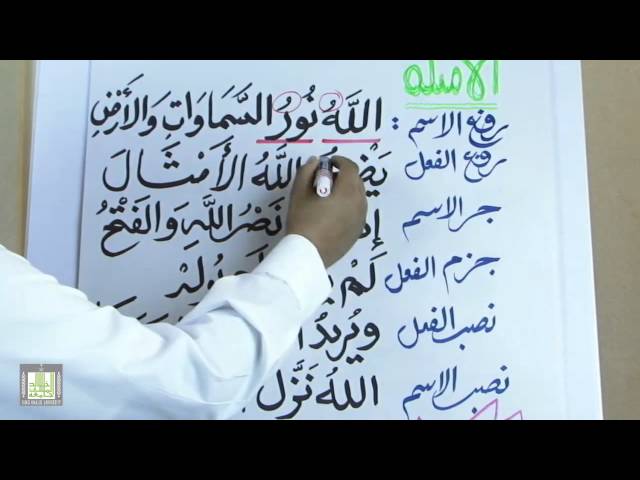 الأمثلة
رفع الاسم : اللَّهُ نُورُ السَّمَاوَاتِ وَالأَرْضِ
رفع الفعل اللَّهُ الأَمْثَالَ
جر الاسم نَصْرُ اللَّهِ وَالفَتْحُ
جزم الفعل لَمْ
نصب الفعل وَيُرِيدُ
نصب الاسم اللَّهُ نَزَّلَ
KING KHALID UNIVERSITY